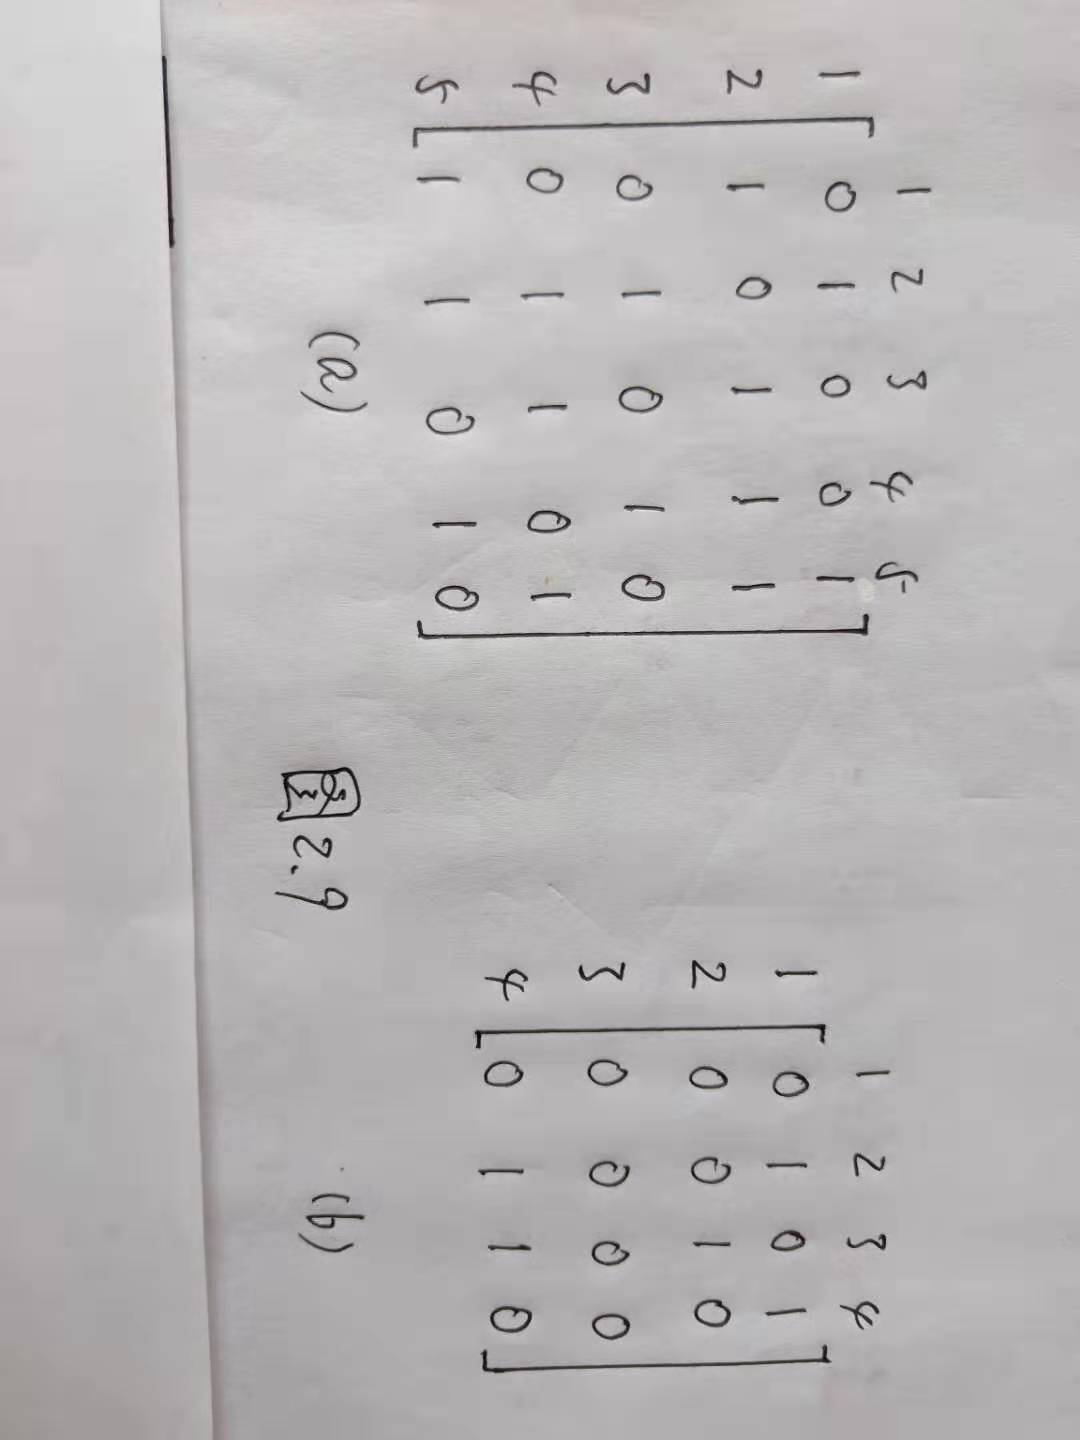 1 2 3 4 5
1 0 1 0 0 1
2 1 0 1 1 1
3 0 1 0 1 0
4 0 1 1 0 1
5 1 1 0 1 0
(a)
1 2 3 4
1 0 1 0 1
2 0 0 1 0
3 0 0 0 0
4 0 1 1 0
(b)
图2.9